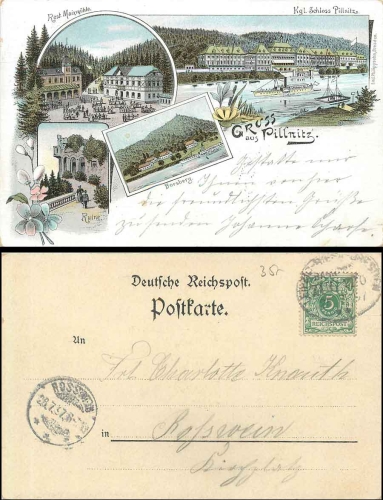 Rest. Meixmühle.
Kgl. Schloss Pillnitz.
Gruss
aus Pillnitz.
Borsberg.
Ruine.
Gestatte mir
Ihnen hierdurch
die freundlichsten Grüße
zu senden Johanna
Deutsche Reichspost.
Postkarte.
35r
5
REICHSPOST
An
Frl. Charlotte Knauth
in Rosswein
Kirchplatz
ROSSWEIN
26.7.97.